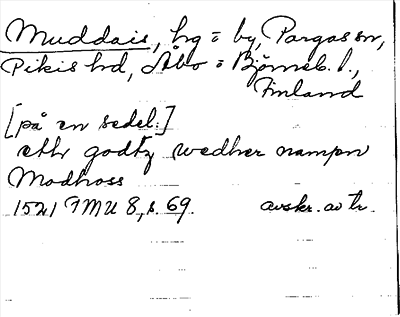 Muddais, hg = by, Pargas sn,
Pikis hd, Åbo = Björneb. l.,
Finland
[på en sedel:]
ett godtz wedher nampn
Modhoss
1521 FMU 8, s. 69. avskr. av tr.